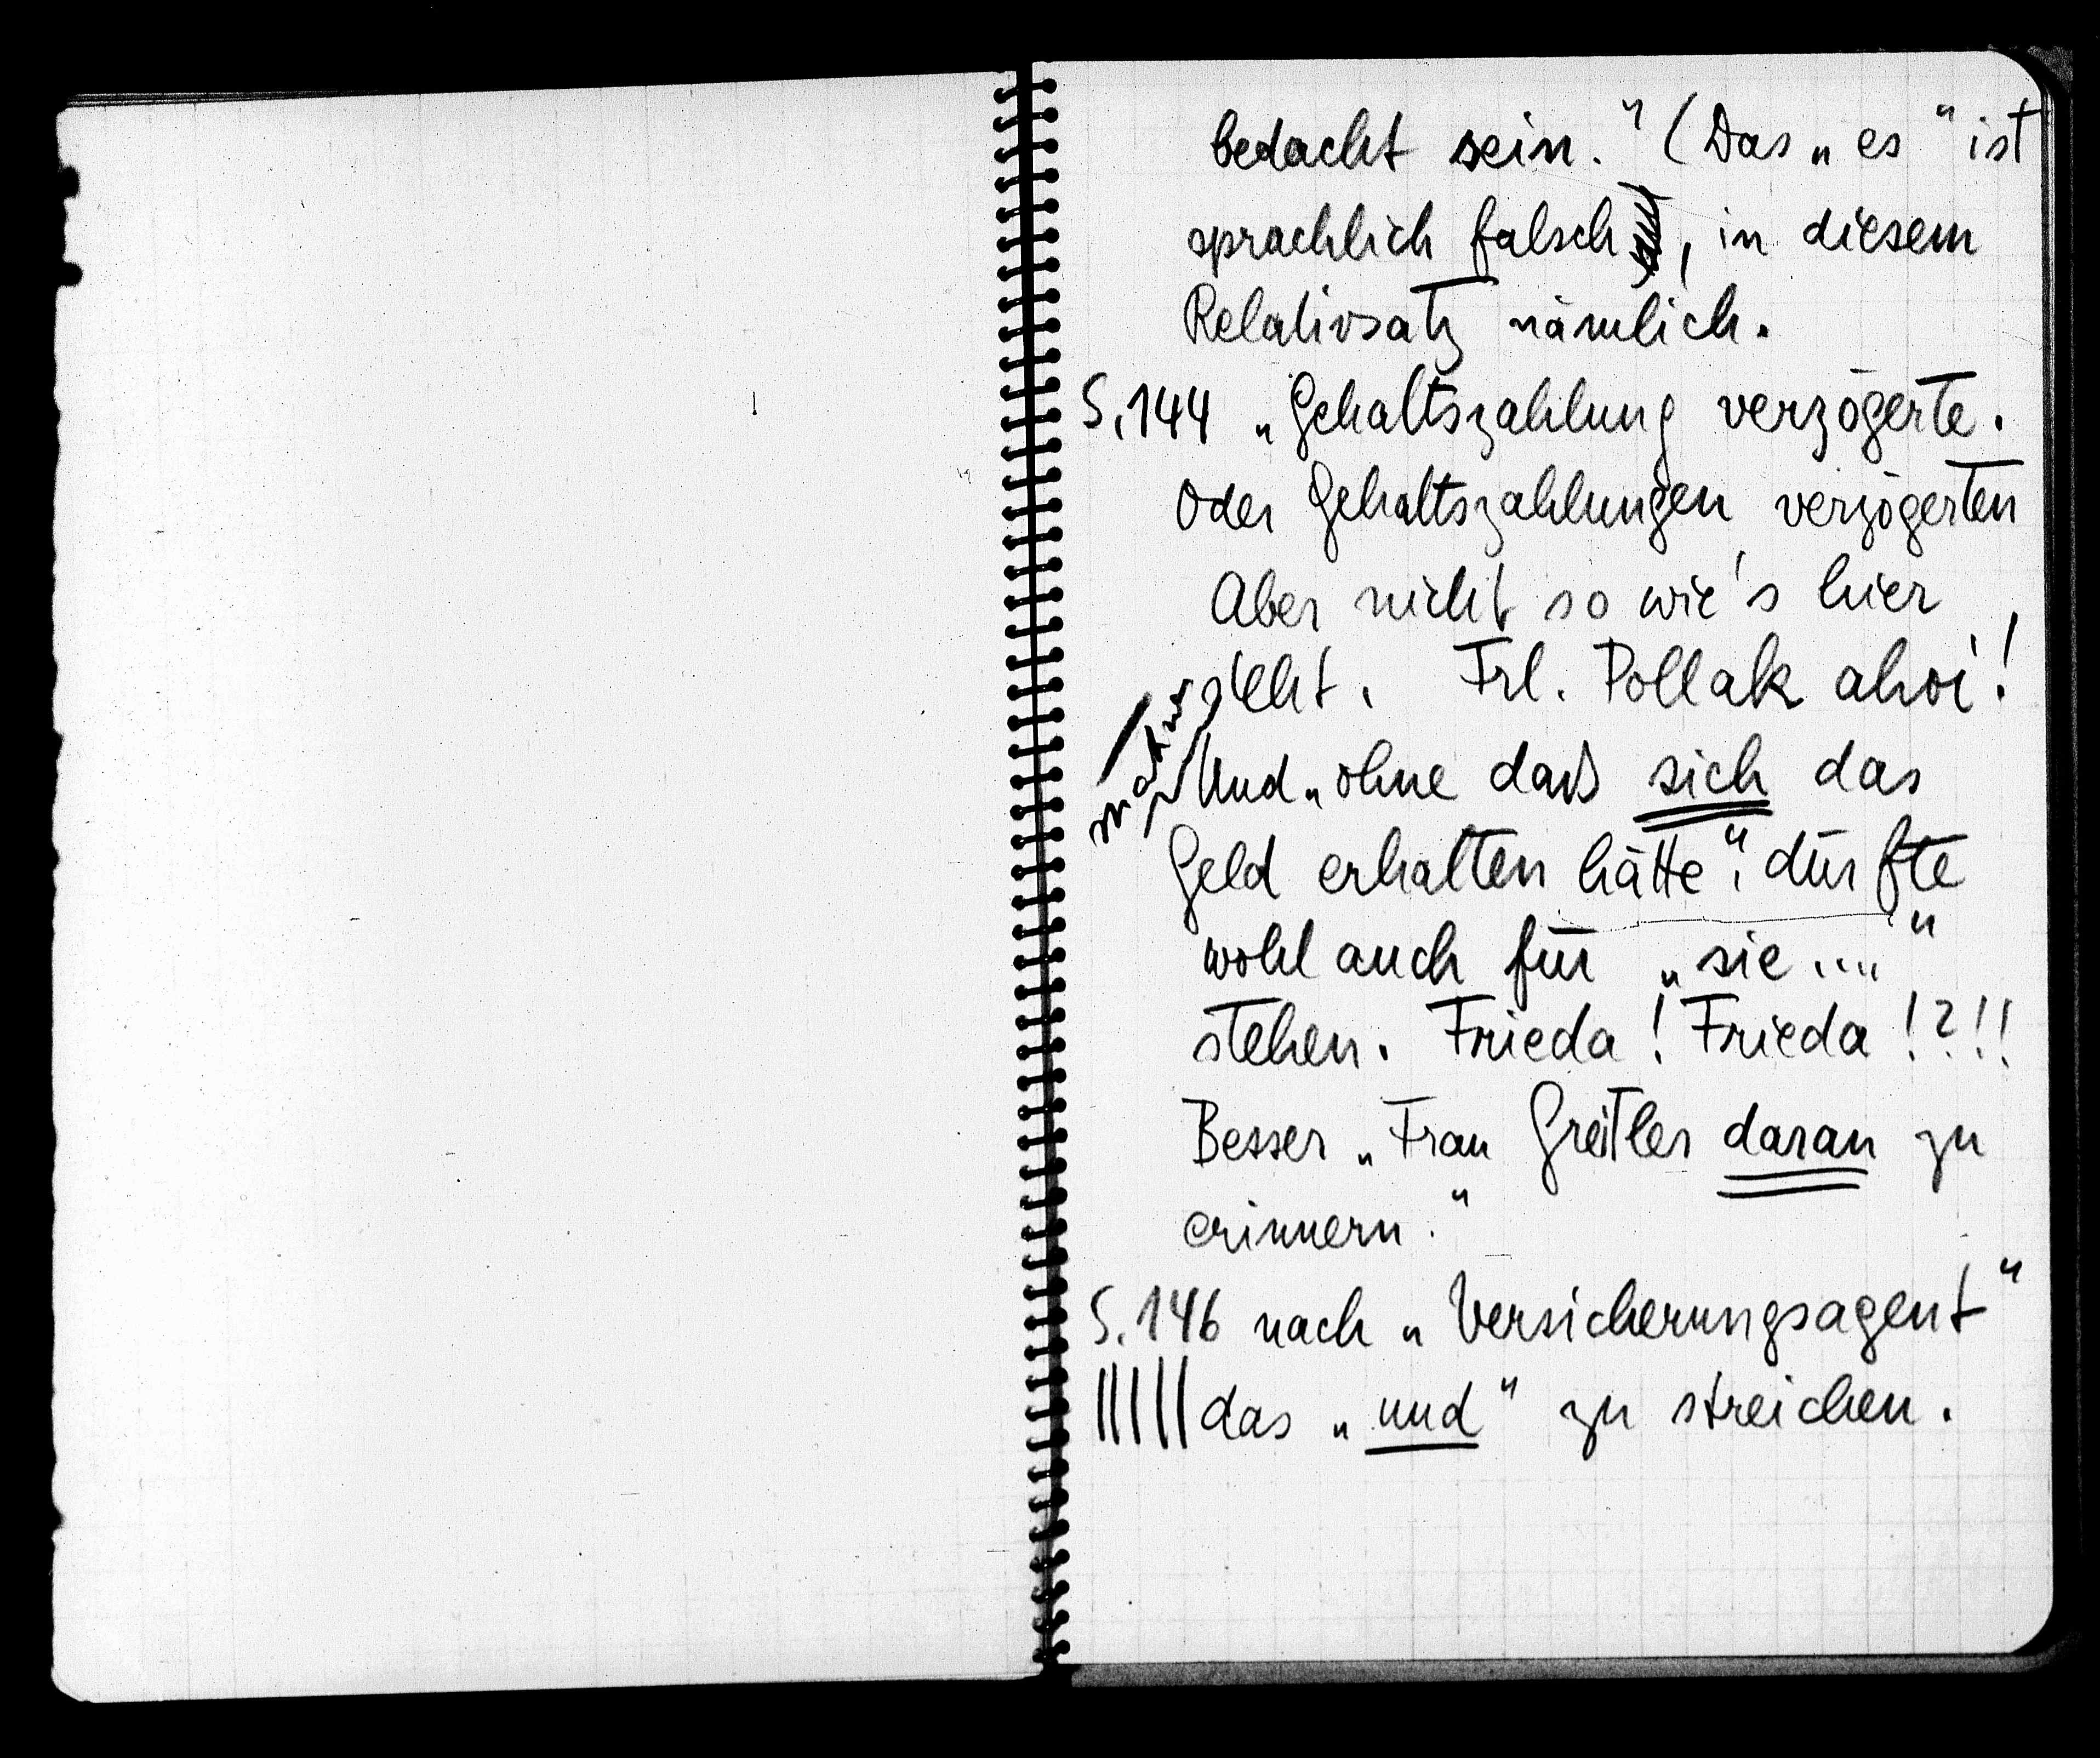 bedacht sein." (Das „es" ist
sprachlich falsch, in diesem
Relativsatz nämlich.
S. 144 „Gehaltszahlung verzögerte.
Oder Gehaltszahlungen verzögerten
Aber nicht so wie's hier
steht. Frl. Pollak ahoi!
Und „ohne daß sich das
Geld erhalten hätte". dürfte
wohl auch für „sie...."
stehen. Frieda! Frieda!?!!
Besser „Frau Greitler daran zu
erinnern."
S. 146 nach „Versicherungsagent"
das „und" zu streichen.